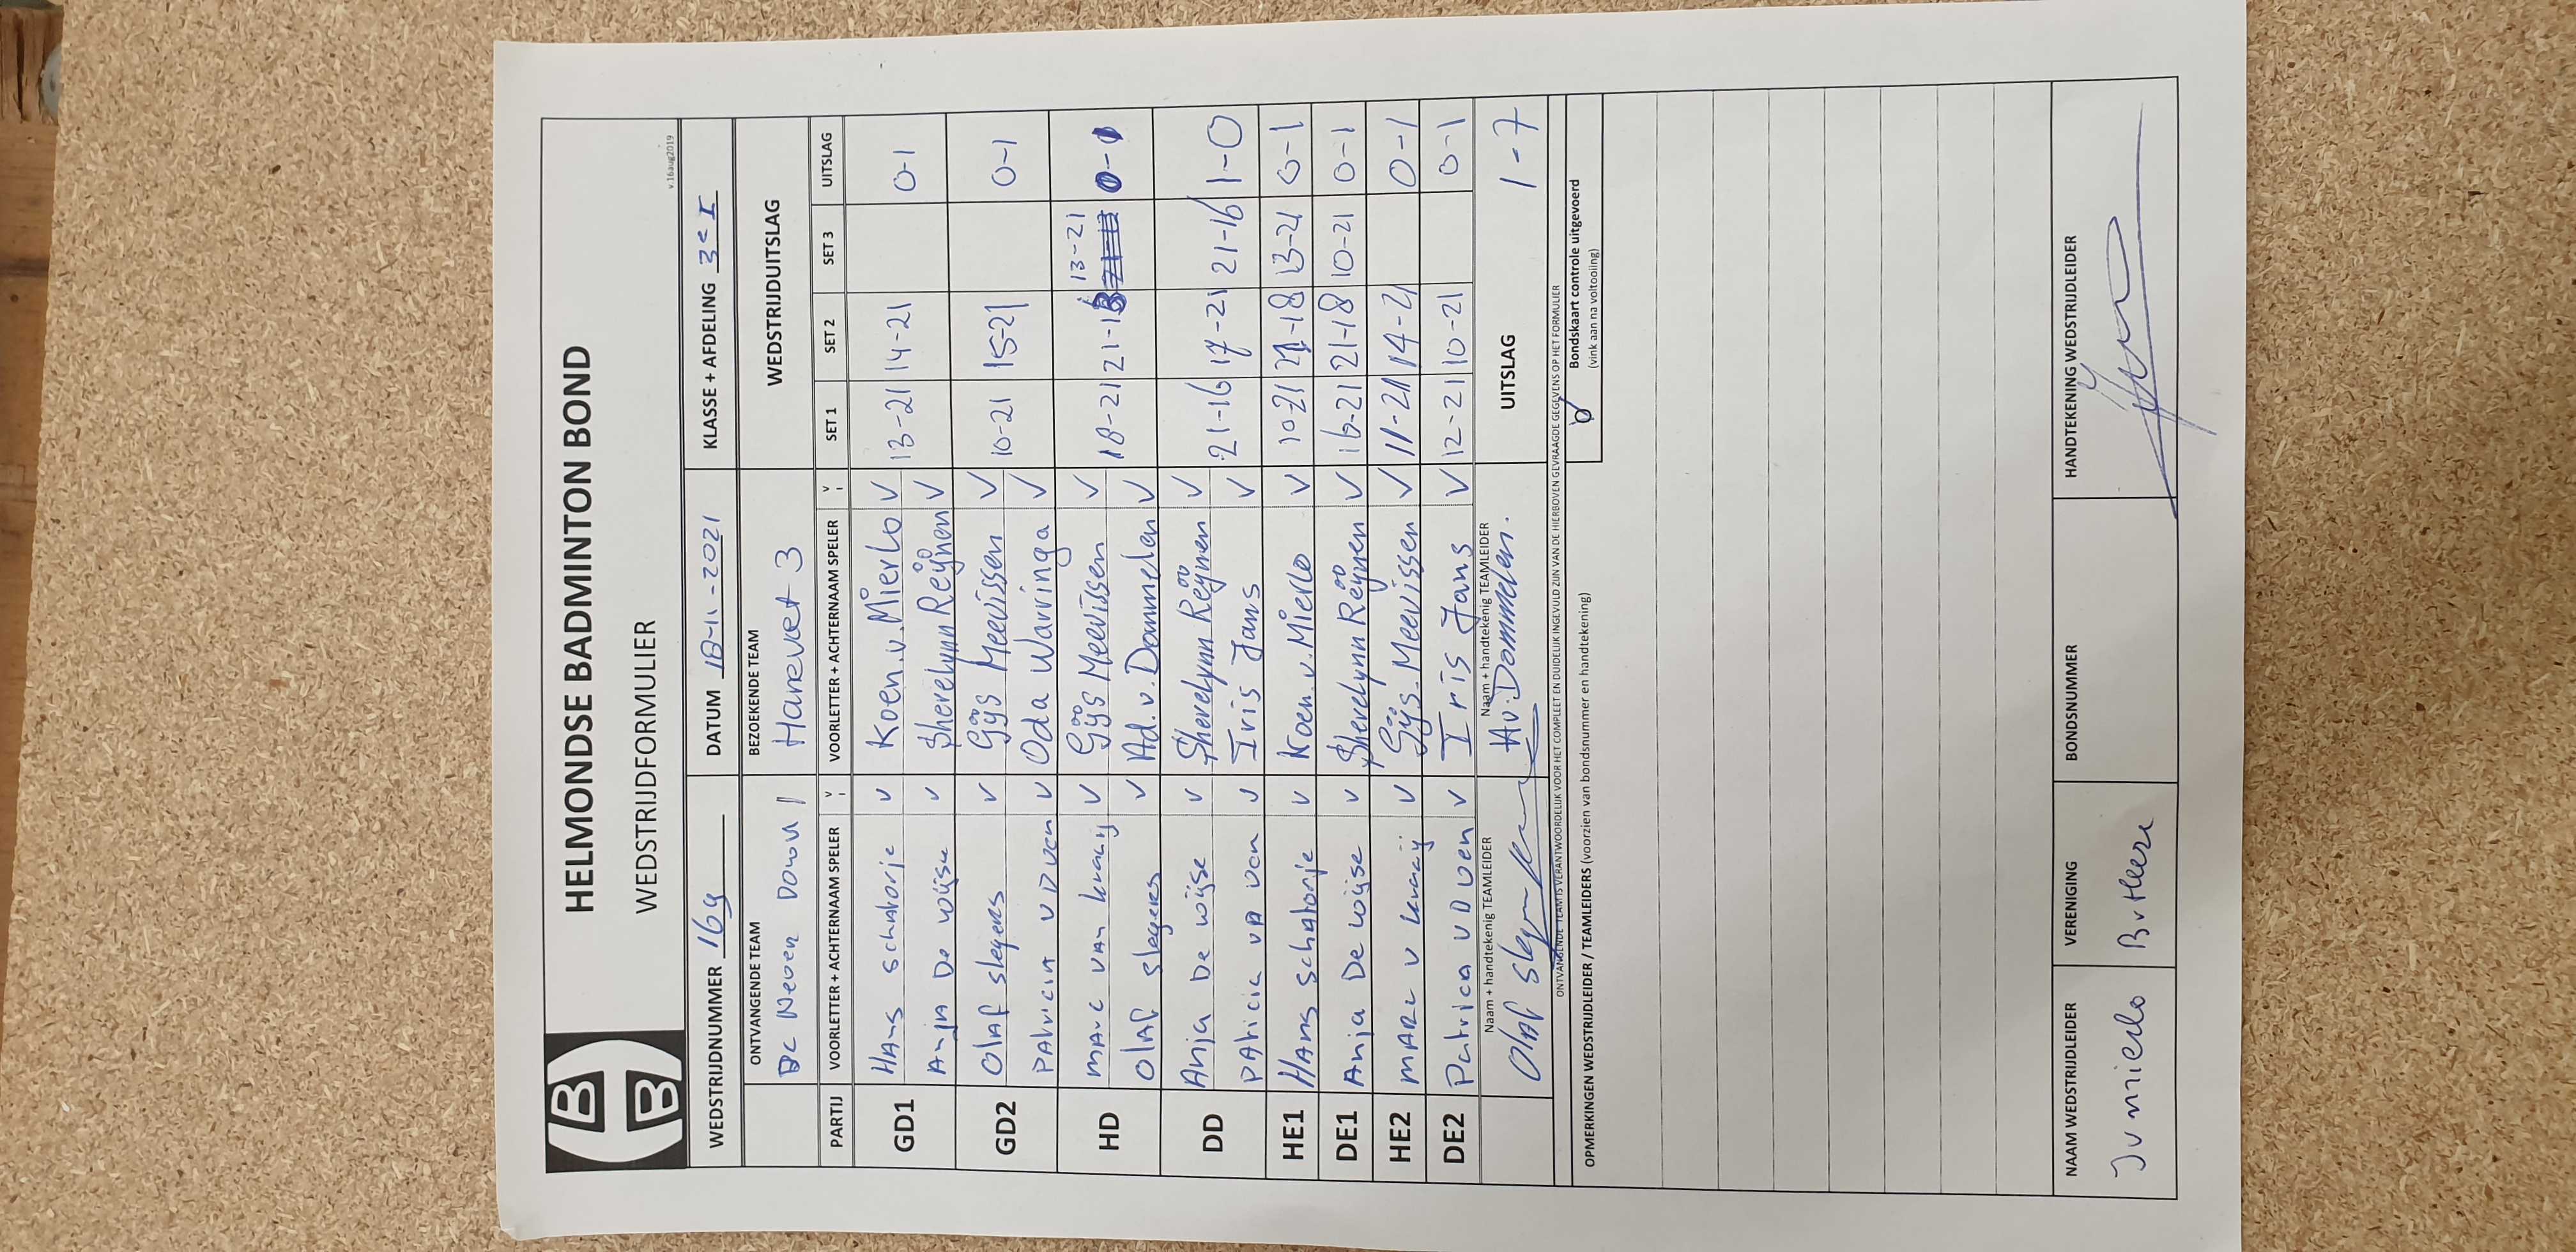 HELMONDSE BADMINTON BOND
WEDSTRIJDFORMULIER
v.16aug2019
WEDSTRIJDNUMMER 169 DATUM 18-11-2021 KLASSE + AFDELING 3e I
ONTVANGENDE TEAM BEZOEKENDE TEAM WEDSTRIJDUITSLAG
BC Neven Down 1 Harevet 3
PARTIJ VOORLETTER + ACHTERNAAM SPELER V VOORLETTER + ACHTERNAAM SPELER V SET 1 SET 2 SET 3 UITSLAG
GD1 Hans schatorje V Koen.v.Mierlo V 13-21 14-21 0-1
Anja De Wijse V Sherelynn Reijnen V
GD2 Olaf slegers V Gijs Meevissen V 10-21 15-21 0-1
Patricia v D ven V Oda Warringa V
HD marc van kraaij V Gijs Meevissen V 18-21 21-16 13-21 0-1
Olaf slegers V Ad.v.Dommelen V
DD Anja De Wijse V Sherelynn Reijnen V 21-16 17-21 21-16 1-0
Patricia vd ven V Iris Jans V
HE1 Hans schatorje V Koen.v.Mierlo V 10-21 21-18 13-21 0-1
DE1 Anja De Wijse V Sherelynn Reijnen V 16-21 21-18 10-21 0-1
HE2 MARC v kraaij V Gijs.Meevissen V 11-21 14-21 0-1
DE2 Patrica v D ven V Iris Jans V 12-21 10-21 0-1
Naam + handtekenig TEAMLEIDER Naam + handtekenig TEAMLEIDER UITSLAG 1-7
Olaf Slegers A.v.Dommelen.
ONTVANGENDE TEAM IS VERANTWOORDELIJK VOOR HET COMPLEET EN DUIDELIJK INGEVULD ZIJN VAN DE HIERBOVEN GEVRAAGDE GEGEVENS OP HET FORMULIER
Bondskaart controle uitgevoerd
(vink aan na voltooiing)
OPMERKINGEN WEDSTRIJDLEIDER / TEAMLEIDERS (voorzien van bondsnummer en handtekening)
NAAM WEDSTRIJDLEIDER VERENIGING BONDSNUMMER HANDTEKENING WEDSTRIJDLEIDER
J v mierlo